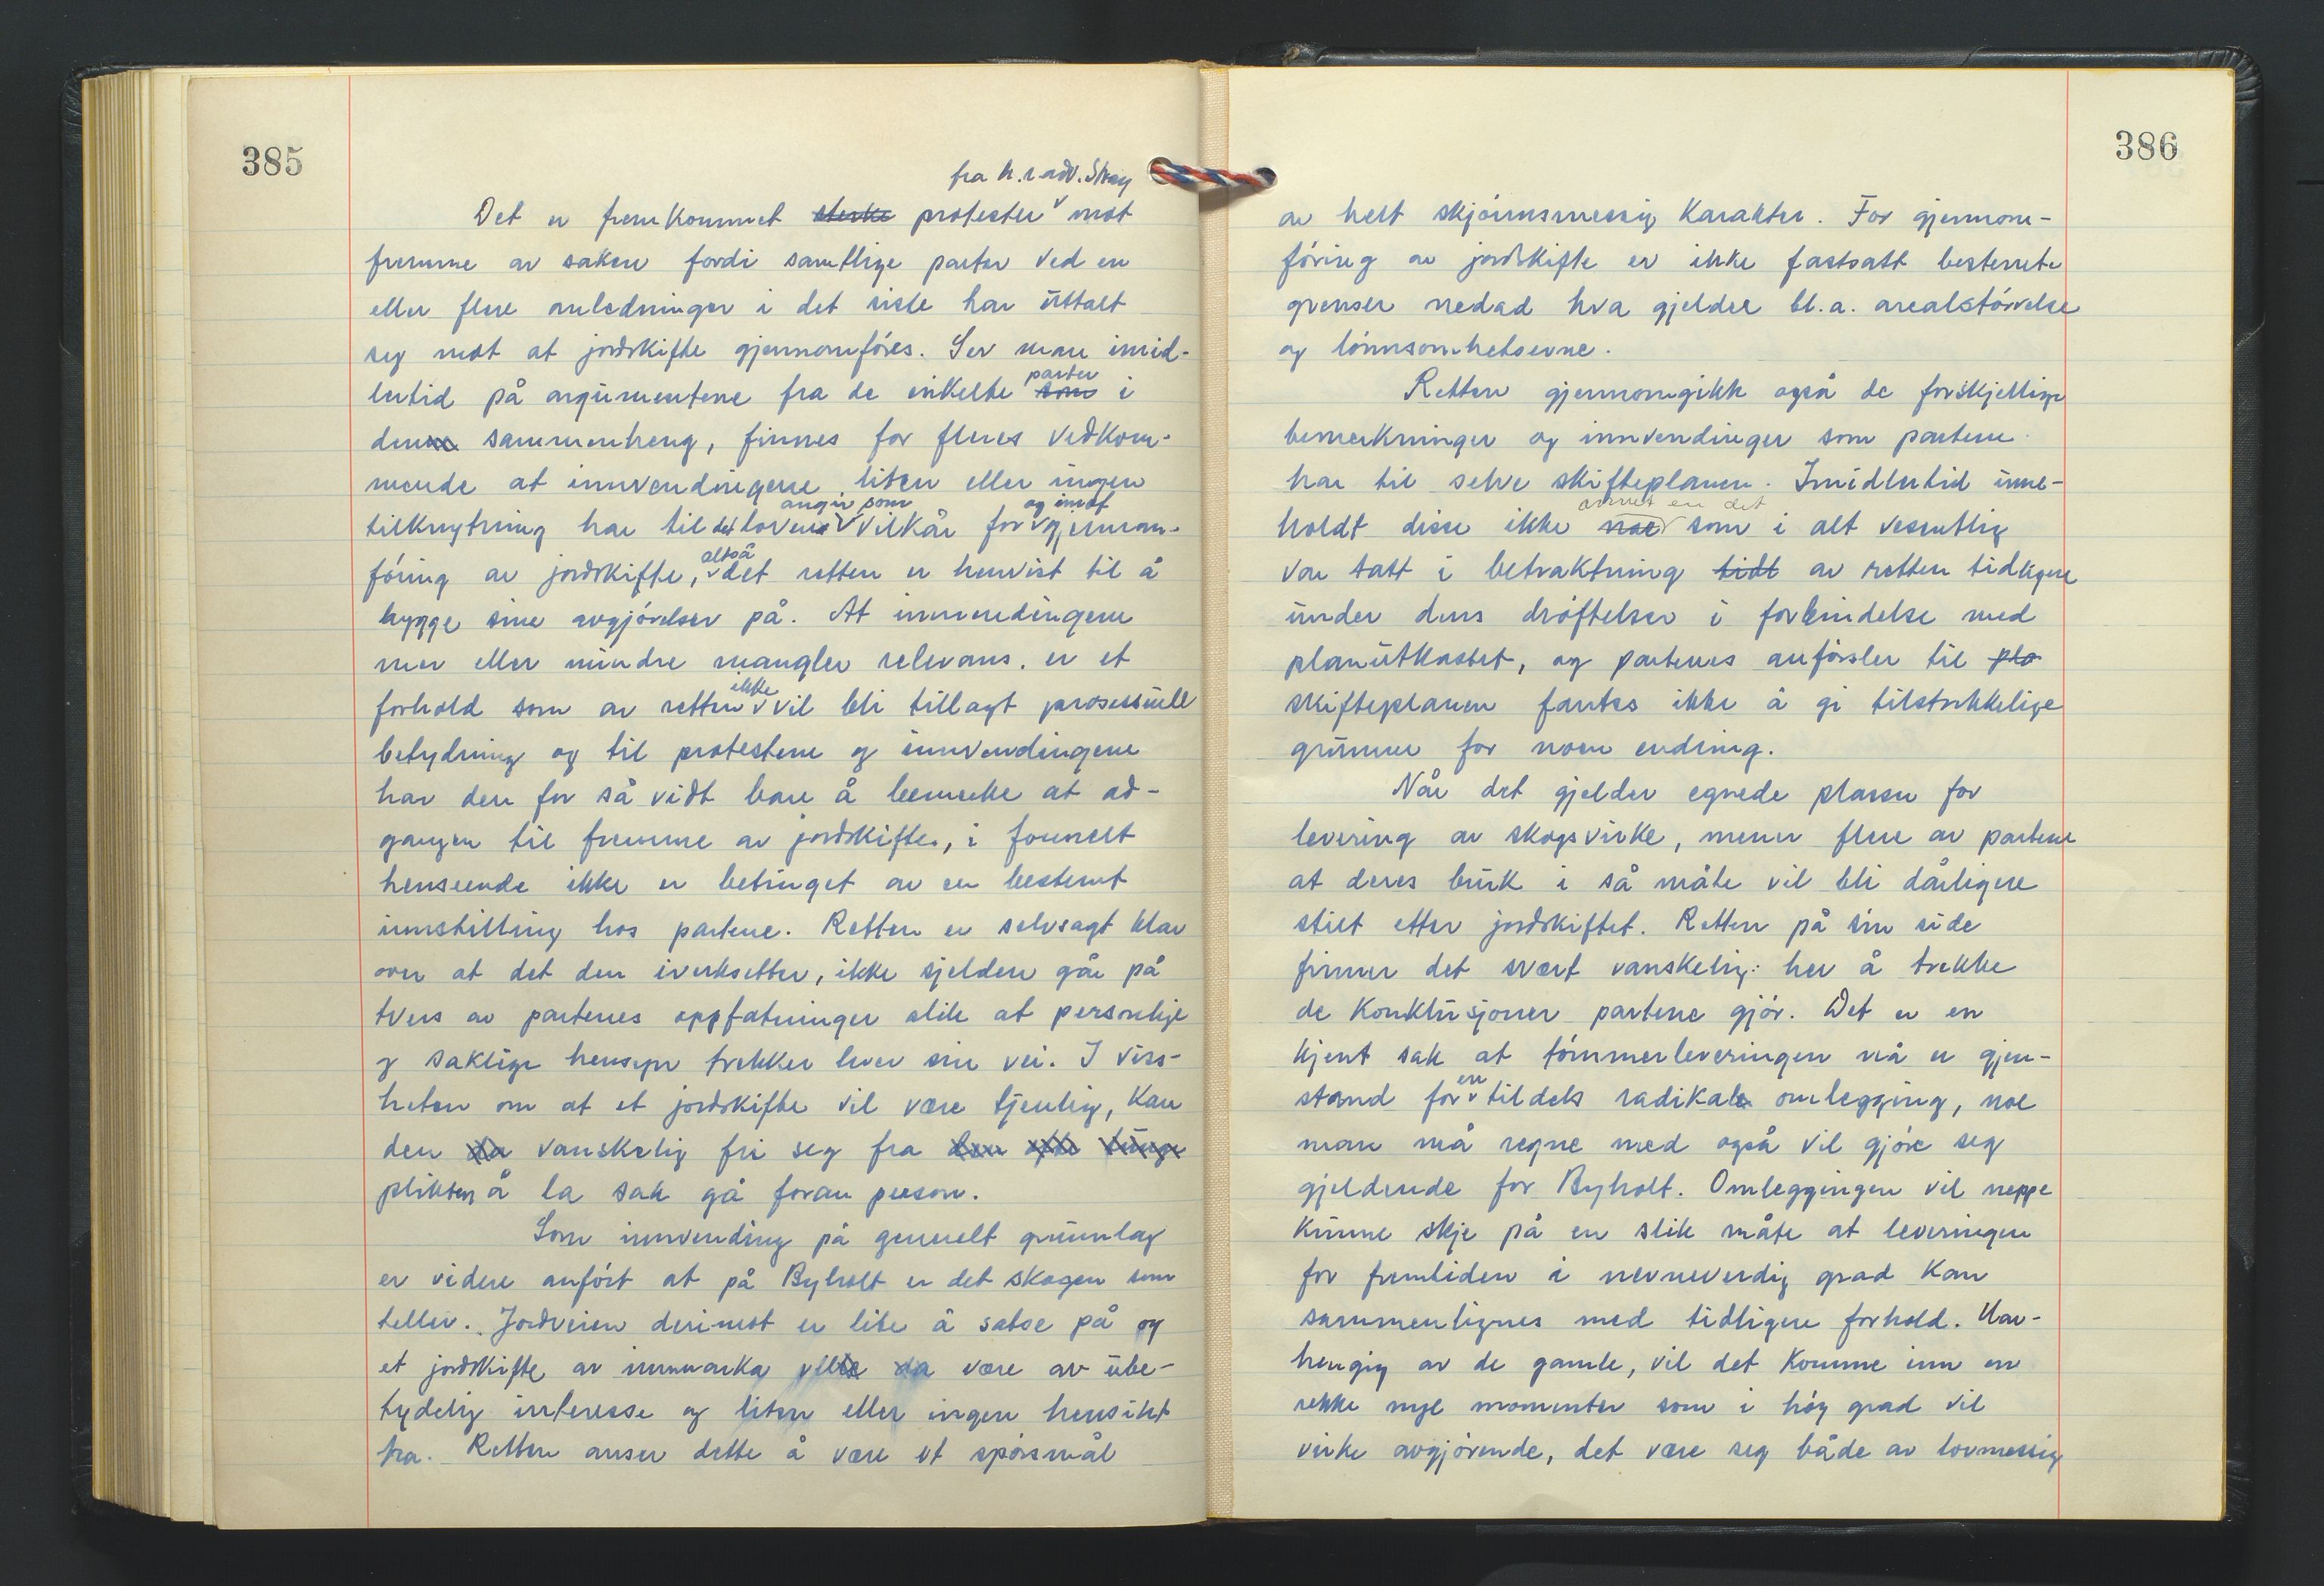 385
fra h.r.adv. Skog
Det er fremkommet sterke protester mot
fremme av saken fordi samtlige parter ved en
eller flere anledninger i det siste har uttalt
seg mot at jordskifte gjennomføres. Ser man imid-
lertid på argumentene fra de enkelte parter som i
denne sammenheng, finnes for fleres vedkom-
mende at innvendingene liten eller ingen
tilknytning har til det lovens angir som vilkår for og imot gjennom-
føring av jordskifte, altså det retten er henvist til å
bygge sine avgjørelser på. At innvendingene
mer eller mindre mangler relevans, er et
forhold som av retten ikke vil bli tillagt prosessuell
betydning og til protestene og innvendingene
har den for så vidt bare å bemerke at ad-
gangen til fremme av jordskifte, i formelt
henseende ikke er betinget av en bestemt
innstilling hos partene. Retten er selvsagt klar
over at det den iverksetter, ikke sjelden går på
tvers av partenes oppfatninger slik at personlige
og saklige hensyn trekker hver sin vei. I viss-
heten om at et jordskifte vil være tjenlig, kan
den da vanskelig fri seg fra den ofte tunge
plikten å la sak gå foran person.
Som innvending på generelt grunnlag
er videre anført at på Byholt er det skogen som
teller. Jordveien derimot er lite å satse på og
et jordskifte av innmarka ville da være av ube-
tydelig interesse og liten eller ingen hensikt
ha. Retten anser dette å være et spørsmål
386
av helt skjønnsmessig karakter. For gjennom-
føring av jordskifte er ikke fastsatt bestemte
grenser nedad hva gjelder bl.a. arealstørrelse
og lønnsomhetsevne.
Retten gjennomgikk også de forskjellige
bemerkninger og innvendinger som partene
har til selve skifteplanen. Imidlertid inne-
holdt disse ikke noe annet en det som i alt vesentlig
var tatt i betraktning tidl av retten tidligere
under dens drøftelser i forbindelse med
planutkastet, og partenes anførsler til pla
skifteplanen fantes ikke å gi tilstrekkelige
grunner for noen endring.
Når det gjelder egnede plasser for
levering av skogsvirke, mener flere av partene
at deres bruk i så måte vil bli dårligere
stilt etter jordskiftet. Retten på sin side
finner det svært vanskelig her å trekke
de konklusjoner partene gjør. Det er en
kjent sak at tømmerleveringen nå er gjen-
stand for en tildels radikale omlegging, noe
man må regne med også vil gjøre seg
gjeldende for Byholt. Omleggingen vil neppe
kunne skje på en slik måte at leveringen
for fremtiden i nevneverdig grad kan
sammenlignes med tidligere forhold. Uav-
hengig av de gamle, vil det komme inn en
rekke nye momenter som i høy grad vil
virke avgjørende, det være seg både av lovmessig